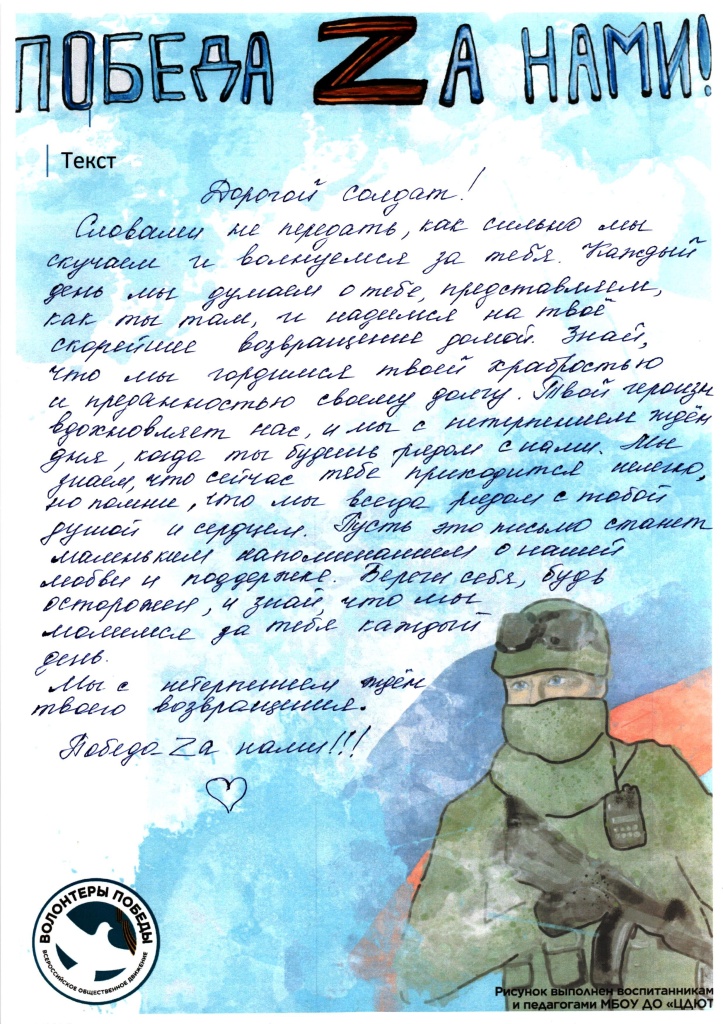 ПОБЕДА ZА НАМИ!
Текст
Дорогой солдат!
Словами не передать, как сильно мы
скучаем и волнуемся за тебя. Каждый
день мы думаем о тебе, представляем,
как ты там, и надеемся на твоё
скорейшее возвращение домой. Знай,
что мы гордимся твоей храбростью
и преданностью своему долгу. Твой героизм
вдохновляет нас, и мы с нетерпением ждём
дня, когда ты будешь рядом с нами. Мы
знаем, что сейчас тебе приходится нелегко,
но помни, что мы всегда рядом с тобой
душой и сердцем. Пусть это письмо станет
маленьким напоминанием о нашей
любви и поддержке. Береги себя, будь
осторожен, и знай, что мы
молимся за тебя каждый
день.
Мы с нетерпением ждём
твоего возвращения.
Победа Zа нами!!!
ВОЛОНТЕРЫ ПОБЕДЫ
ВСЕРОССИЙСКОЕ ОБЩЕСТВЕННОЕ ДВИЖЕНИЕ
Рисунок выполнен воспитанникам
и педагогами МБОУ ДО «ЦДЮТ